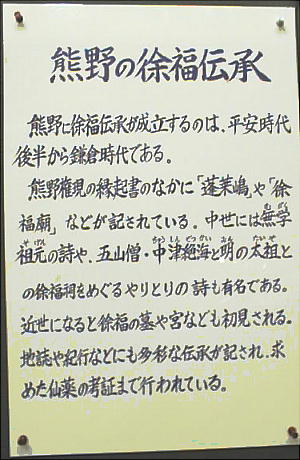 熊野の徐福伝承
熊野に徐福伝承が成立するのは、平安時代
後半から鎌倉時代である。
熊野権現の縁起書のなかに「蓬莱嶋」や「徐
福廟」などが記されている。中世には無学
祖元の詩や、五山僧・中津絶海と明の太祖と
の徐福祠をめぐるやりとりの詩も有名である。
近世になると徐福の墓や宮なども初見される。
地誌や紀行などにも多彩な伝承が記され、求
めた仙薬の考証まで行われている。